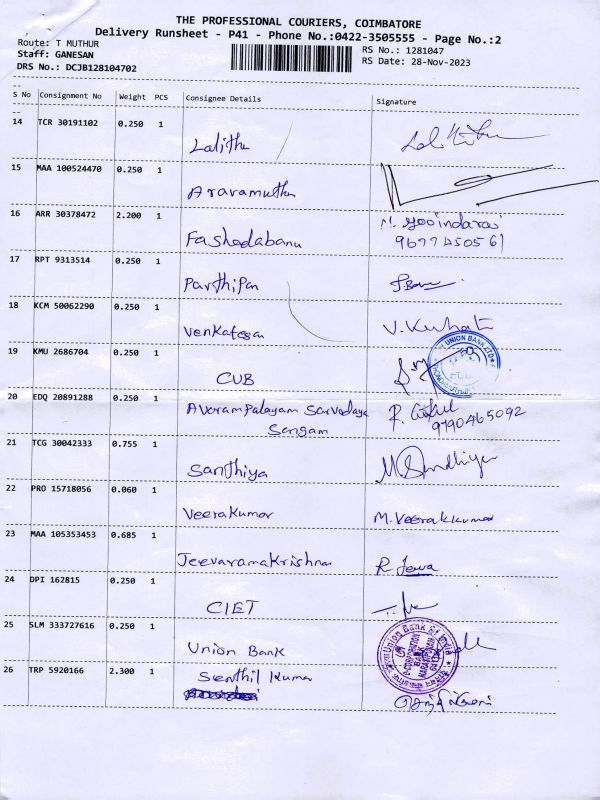 THE PROFESSIONAL COURIERS, COIMBATORE
Delivery Runsheet - P41 - Phone No.:0422-3505555 - Page No.:2
Route: T MUTHUR
Staff: GANESAN
DRS No.: DCJB128104702
RS No.: 1281047
RS Date: 28-Nov-2023
S No Consignment No Weight PCS Consignee Details Signature
14 TCR 30191102 0.250 1 Lalitha
15 MAA 100524470 0.250 1 Aravamuthu
16 ARR 30378472 2.200 1 Fashodabanu M. Govindaraj
9677450561
17 RPT 9313514 0.250 1 Parthipan
18 KCM 50062290 0.250 1 Venkatesan
19 KMU 2686704 0.250 1 CUB
UNION BANK LTD
20 EDQ 20891288 0.250 1 Avarampalayam Sarvodaya R. Gokul
Sangam 9790465092
21 TCG 30042333 0.755 1 Santhiya M. Sandhiya
22 PRO 15718056 0.060 1 Veerakumar M. Veerakkumar
23 MAA 105353453 0.685 1 Jeevaramakrishnan R Jeeva
24 DPI 162815 0.250 1 CIET
25 SLM 333727616 0.250 1 Union Bank
Union Bank of India
26 TRP 5920166 2.300 1 Senthil Kumar செந்தில்குமார்